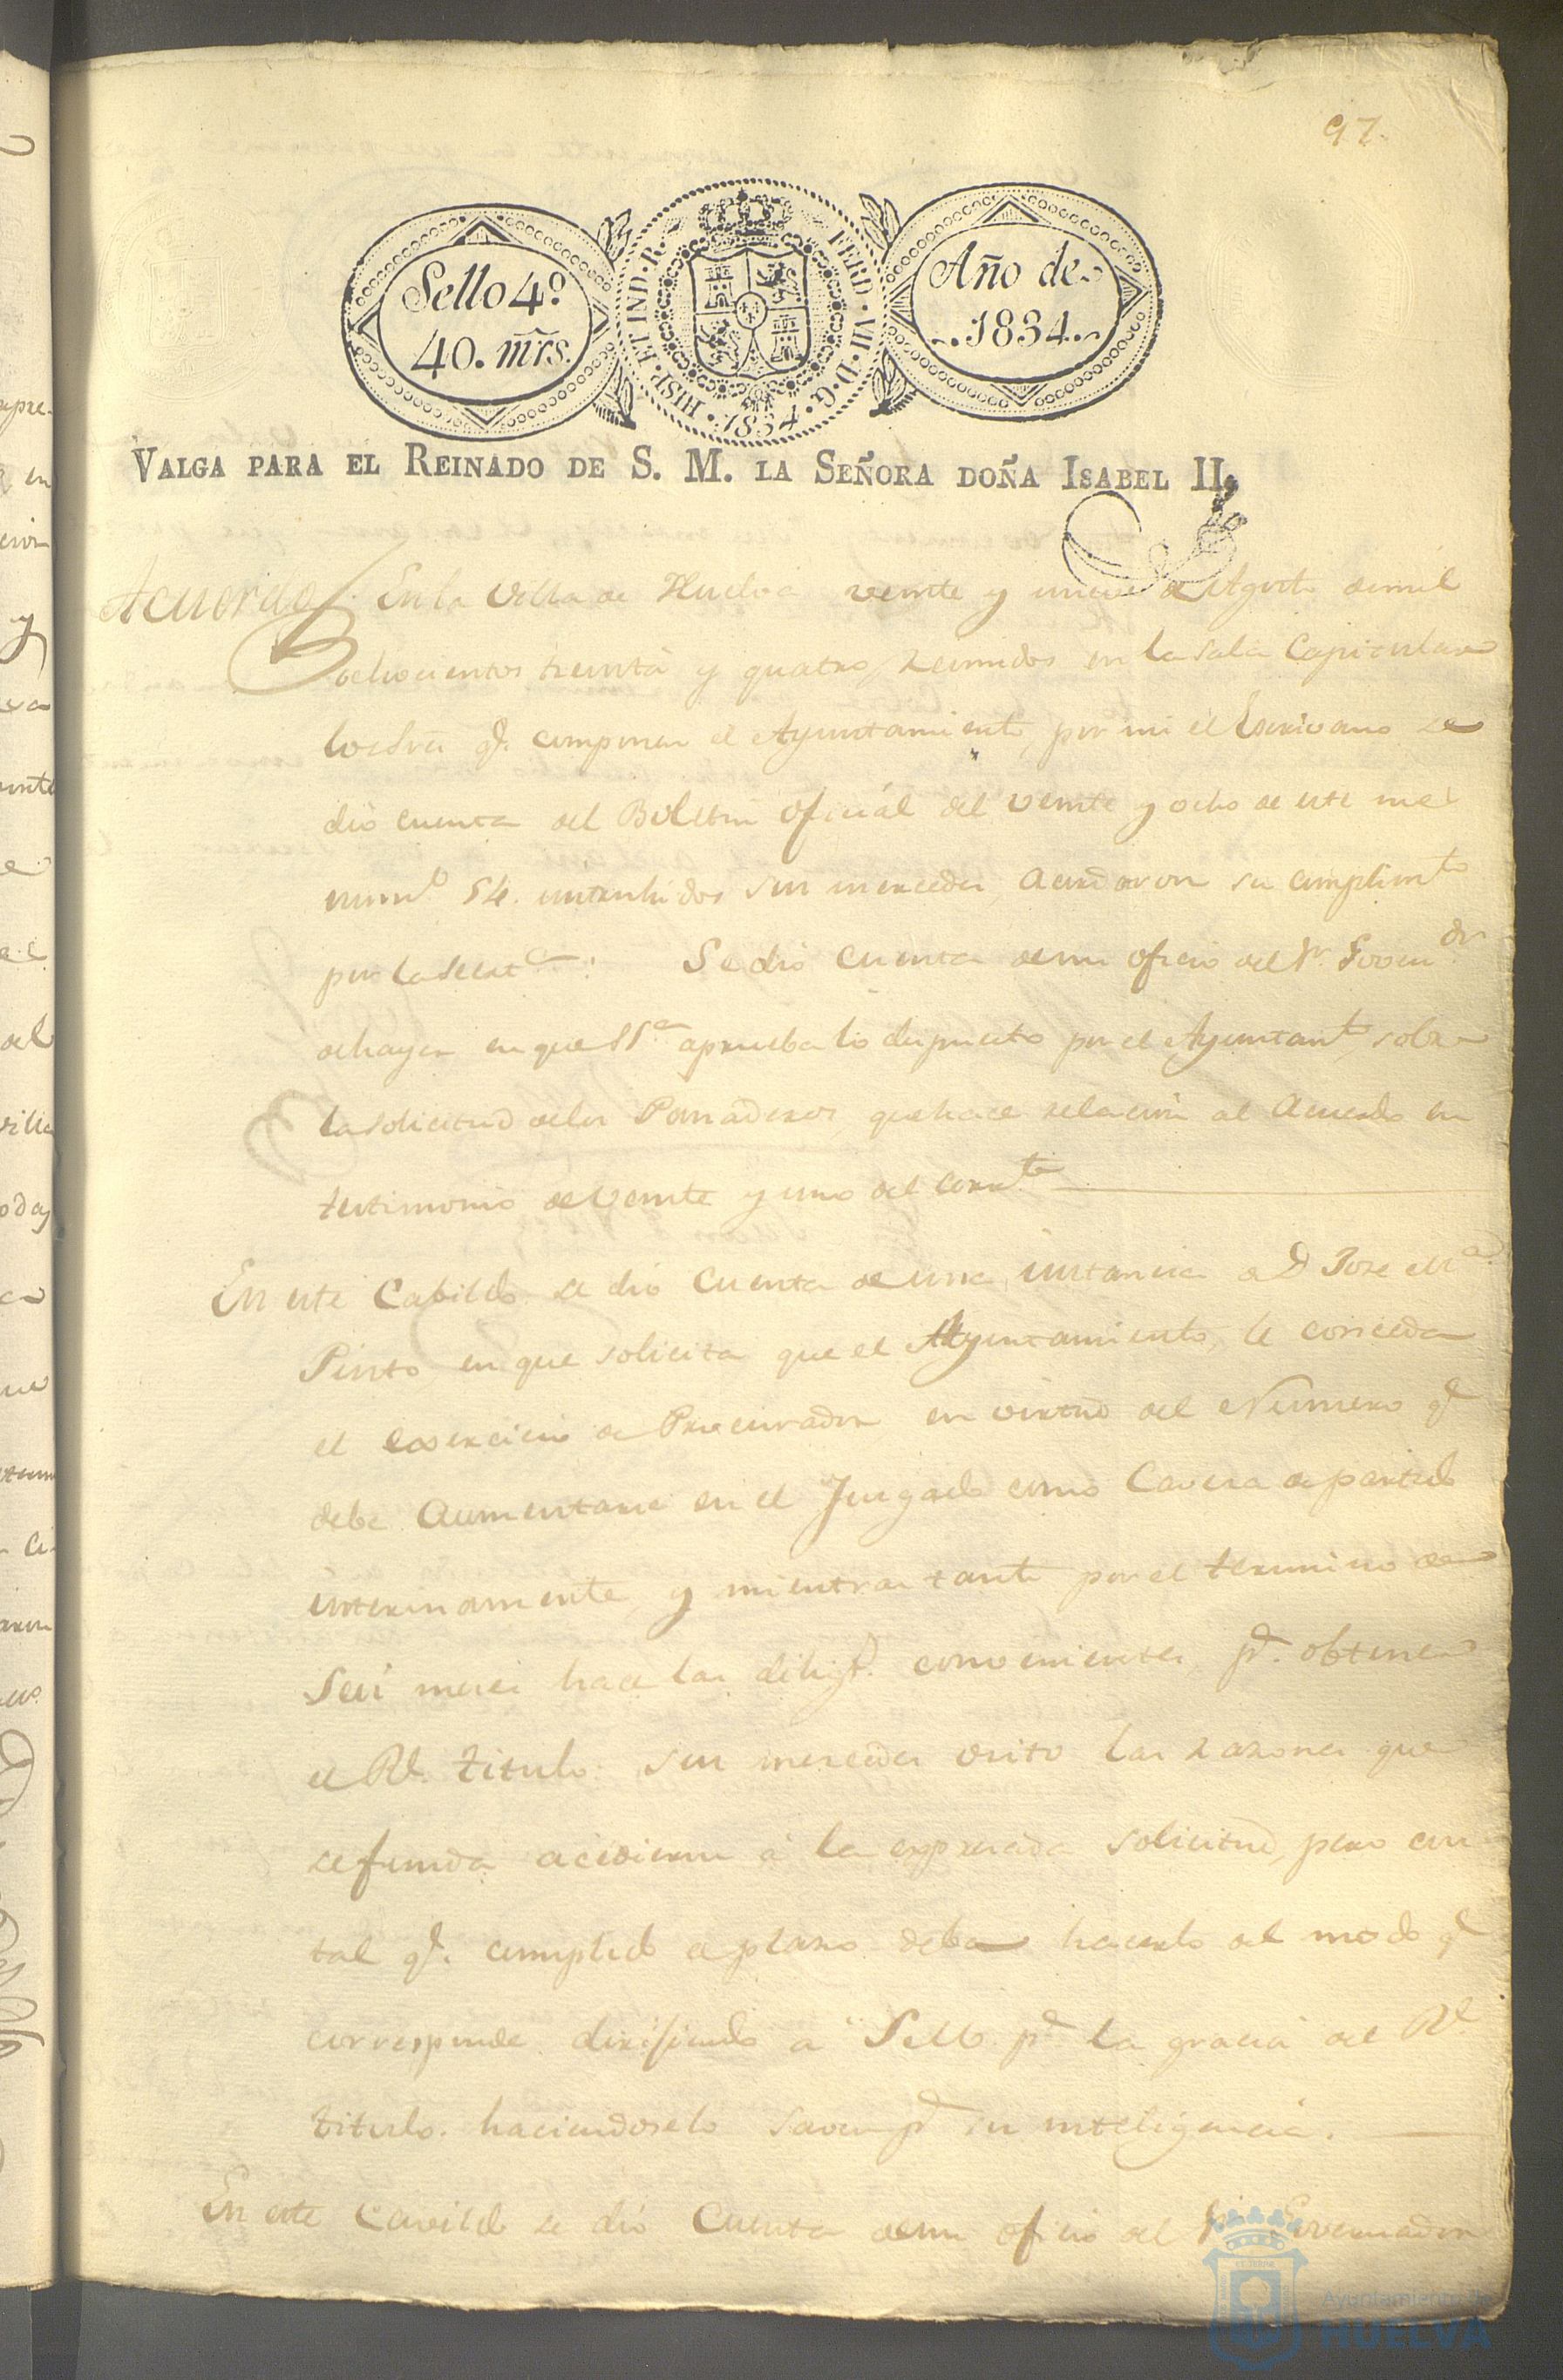 97.
Sello 4º
40. mrs.
HISP. ET IND. R.
FERD. VII. D. G.
1834.
Año de
1834.
VALGA PARA EL REINADO DE S. M. LA SEÑORA DOÑA ISABEL II,
Acuerdo En la Villa de Huelva veinte y nueve de Agosto de mil
ochocientos treinta y quatro, reunidos en la sala Capitular
los Sres qe. componen el Ayuntamiento, por mi el Escrivano se
dió cuenta del Boletin oficial del veinte y ocho de este mes
numo. 54. entendidos sus mercedes, acordaron su cumplimto
por la Secreta: Se dió cuenta de un oficio del Sr. Governdor
de hayer en que SSa aprueba lo dispuesto por el Ayuntamto, sobre
la solicitud de los Panaderos, que hace relacion al Acuerdo en
testimonio de veinte y uno del corrte
En este Cabildo se dió cuenta de una instancia de Dn Jose Ma
Pinto, en que solicita que el Ayuntamiento, le conceda
el exercicio de Procurador en virtud del Numero qe
debe Aumentarse en el Juzgado como Cavesa de partido
interinamente, y mientras tanto por el termino de
Seis meses hace las diligs. convenientes, pa. obtener
el Rl. titulo. Sus mercedes visto las razones que
se funda accedieron á la expresada solicitud, pero con
tal qe. cumplido el plaso deba hacerlo del modo qe
corresponde dirijiendo á S. M. pa la gracia del Rl
titulo. haciendoselo saver pa su inteligencia.
En este Cavildo se dió Cuenta de un oficio del Sr Governador
Ayuntamiento de
HUELVA